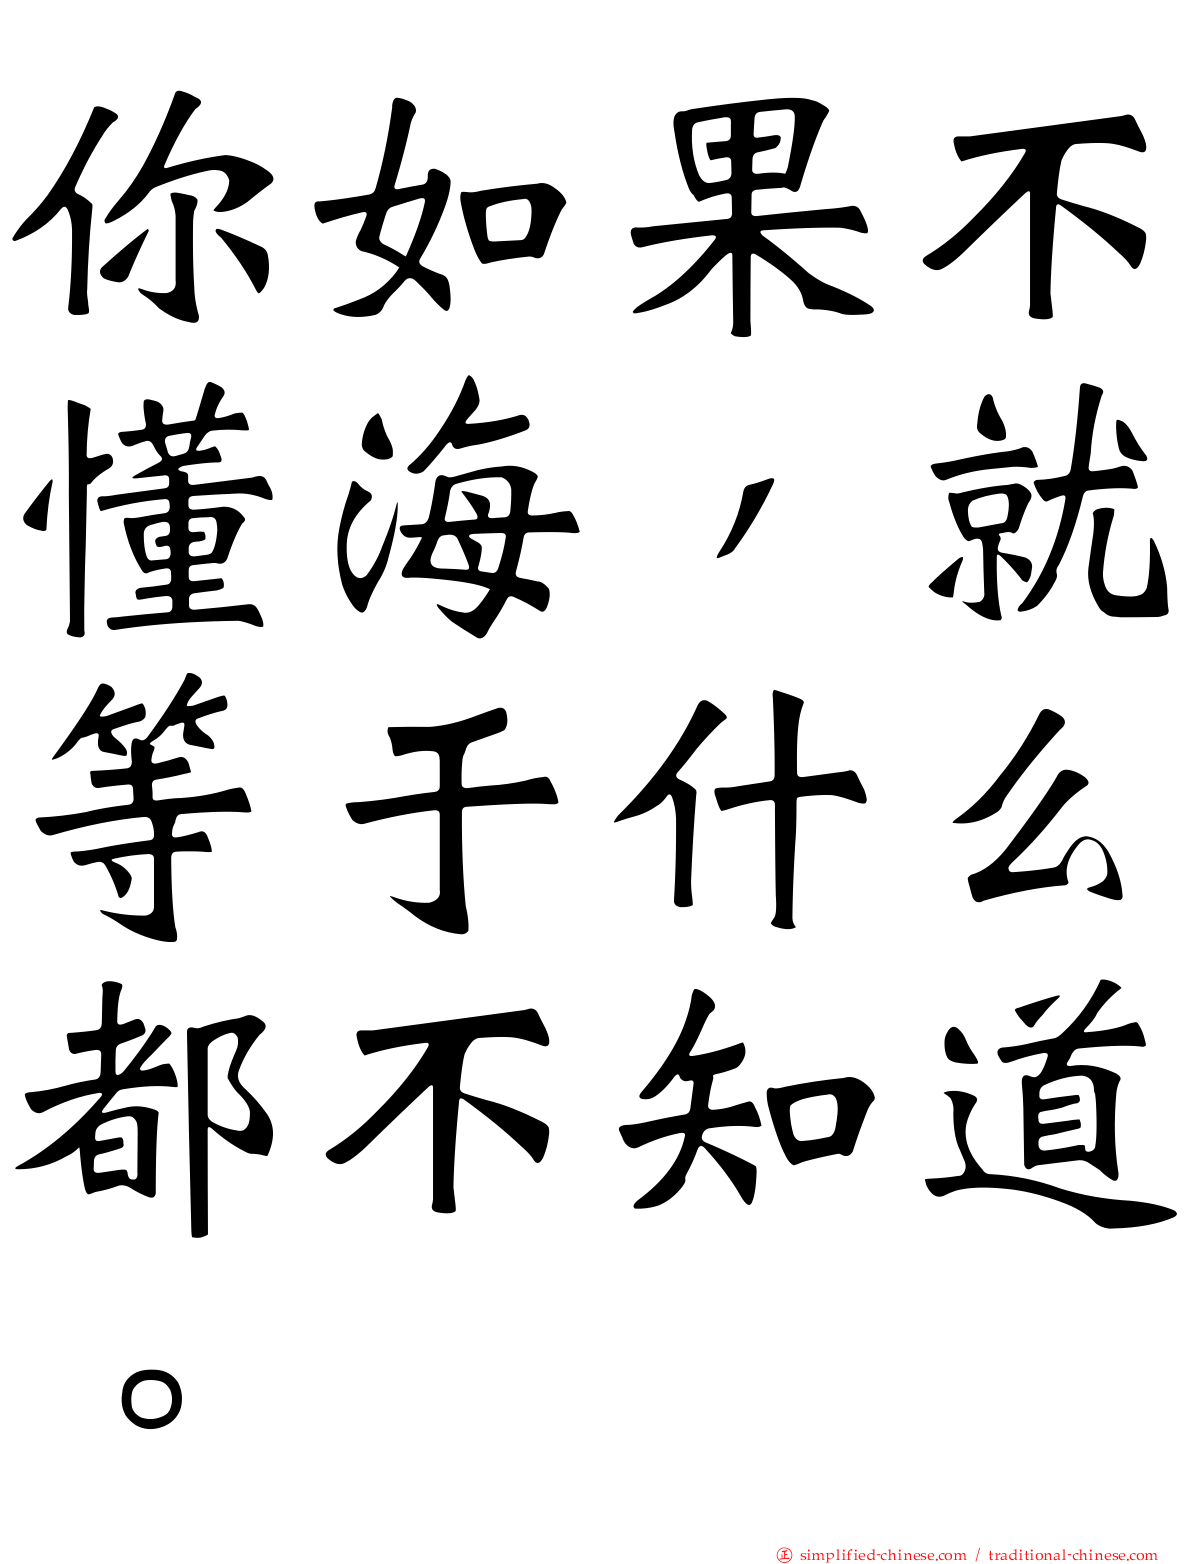 你如果不
懂海，就
等于什么
都不知道
。
㊣ simplified-chinese.com / traditional-chinese.com